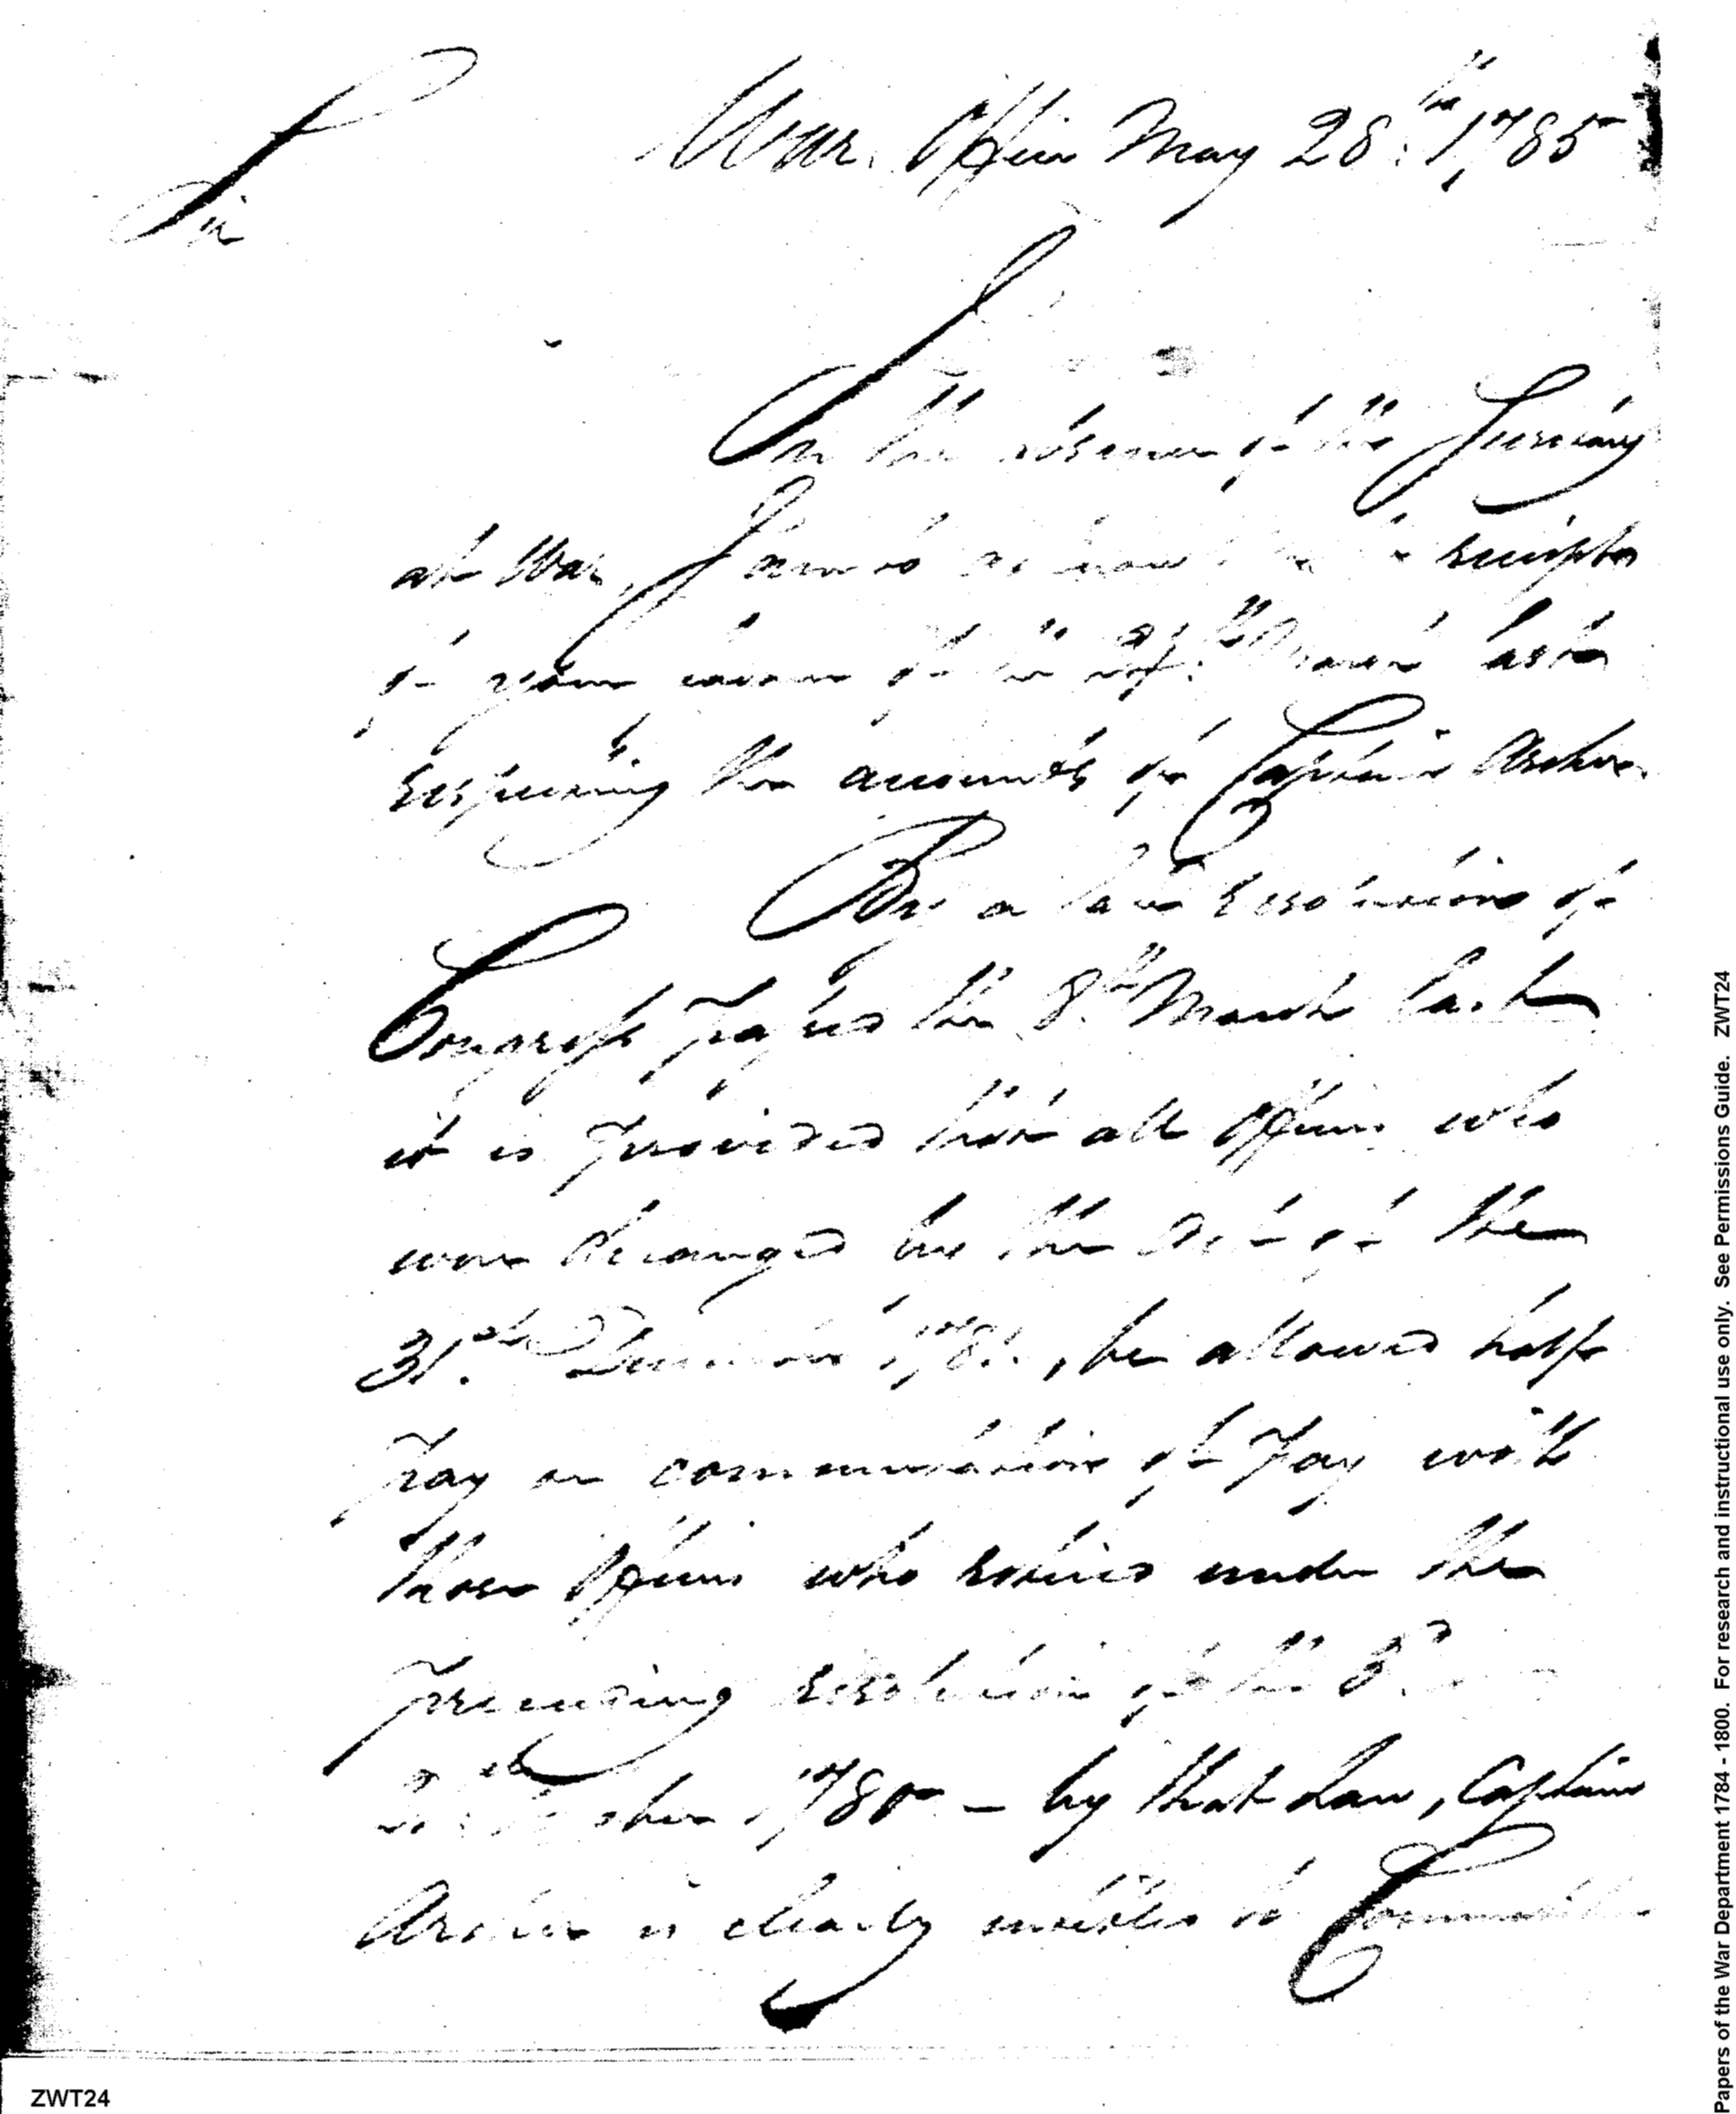 War Office May 28.th 1785
Sir
In the absence of the Secretary
at War, I am to receipt
of your favour of the March last
respecting the accounts of Captain Archer
By a late resolution of
Congress passed the 8.th March last
it is provided that all Officers who
were deranged by the Act of the
31.st December 1781, be allowed half
pay or commutation of pay with
those Officers who retired under the
preceeding resolution of the 3.d
1780 – by that Law, Captain
Archer is clearly entitled to Commutation
ZWT24
Papers of the War Department 1784 - 1800. For research and instructional use only. See Permissions Guide. ZWT24